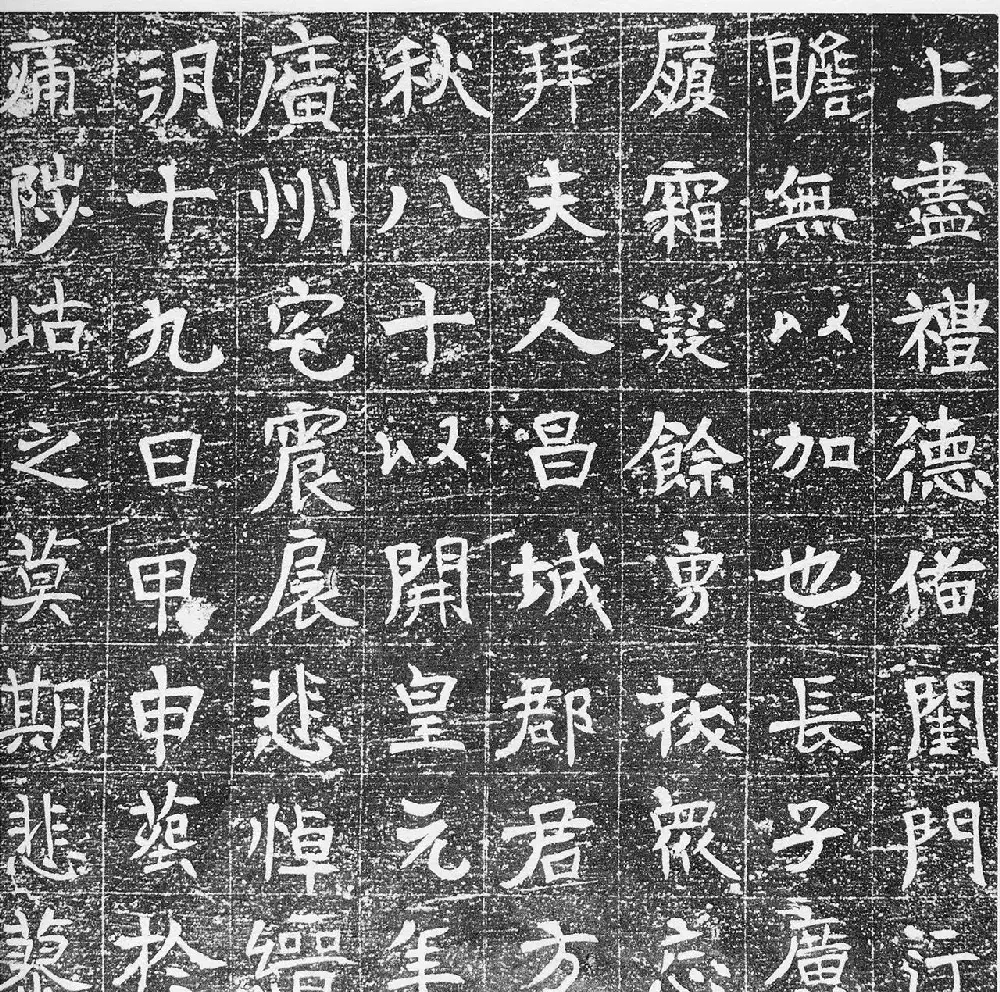 上盡禮德備閨門行
瞻無以加也長子廣
履霜凝餘勇挍眾忘
拜夫人昌城郡君方
秋八十以開皇元年
廣州宅震扆悲悼縉
十九日甲申葬於
痛陟岵之莫期悲蓼